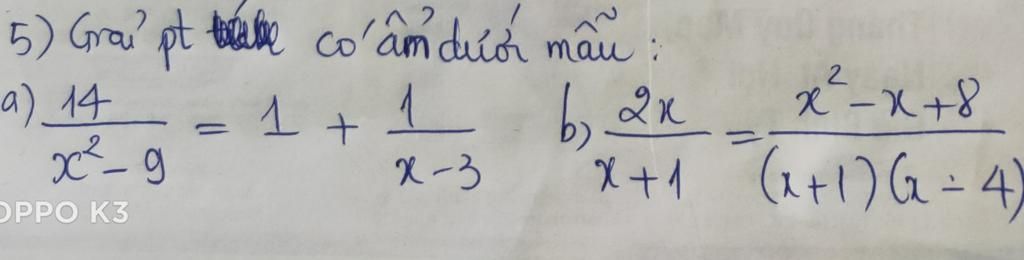 5) Giải pt có ẩn dưới mẫu :
a) 14/(x² - 9) = 1 + 1/(x - 3) b) 2x/(x + 1) = (x² - x + 8)/((x + 1)(x - 4))
OPPO K3